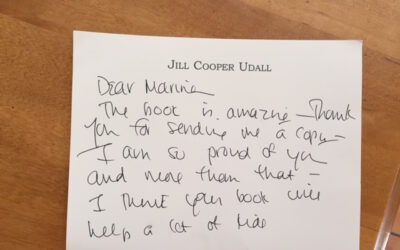 JILL COOPER UDALL
Dear Marina
The book is amazing — Thank
you for sending me a copy —
I am so proud of you
and more than that —
I think your book will
help a lot of kids